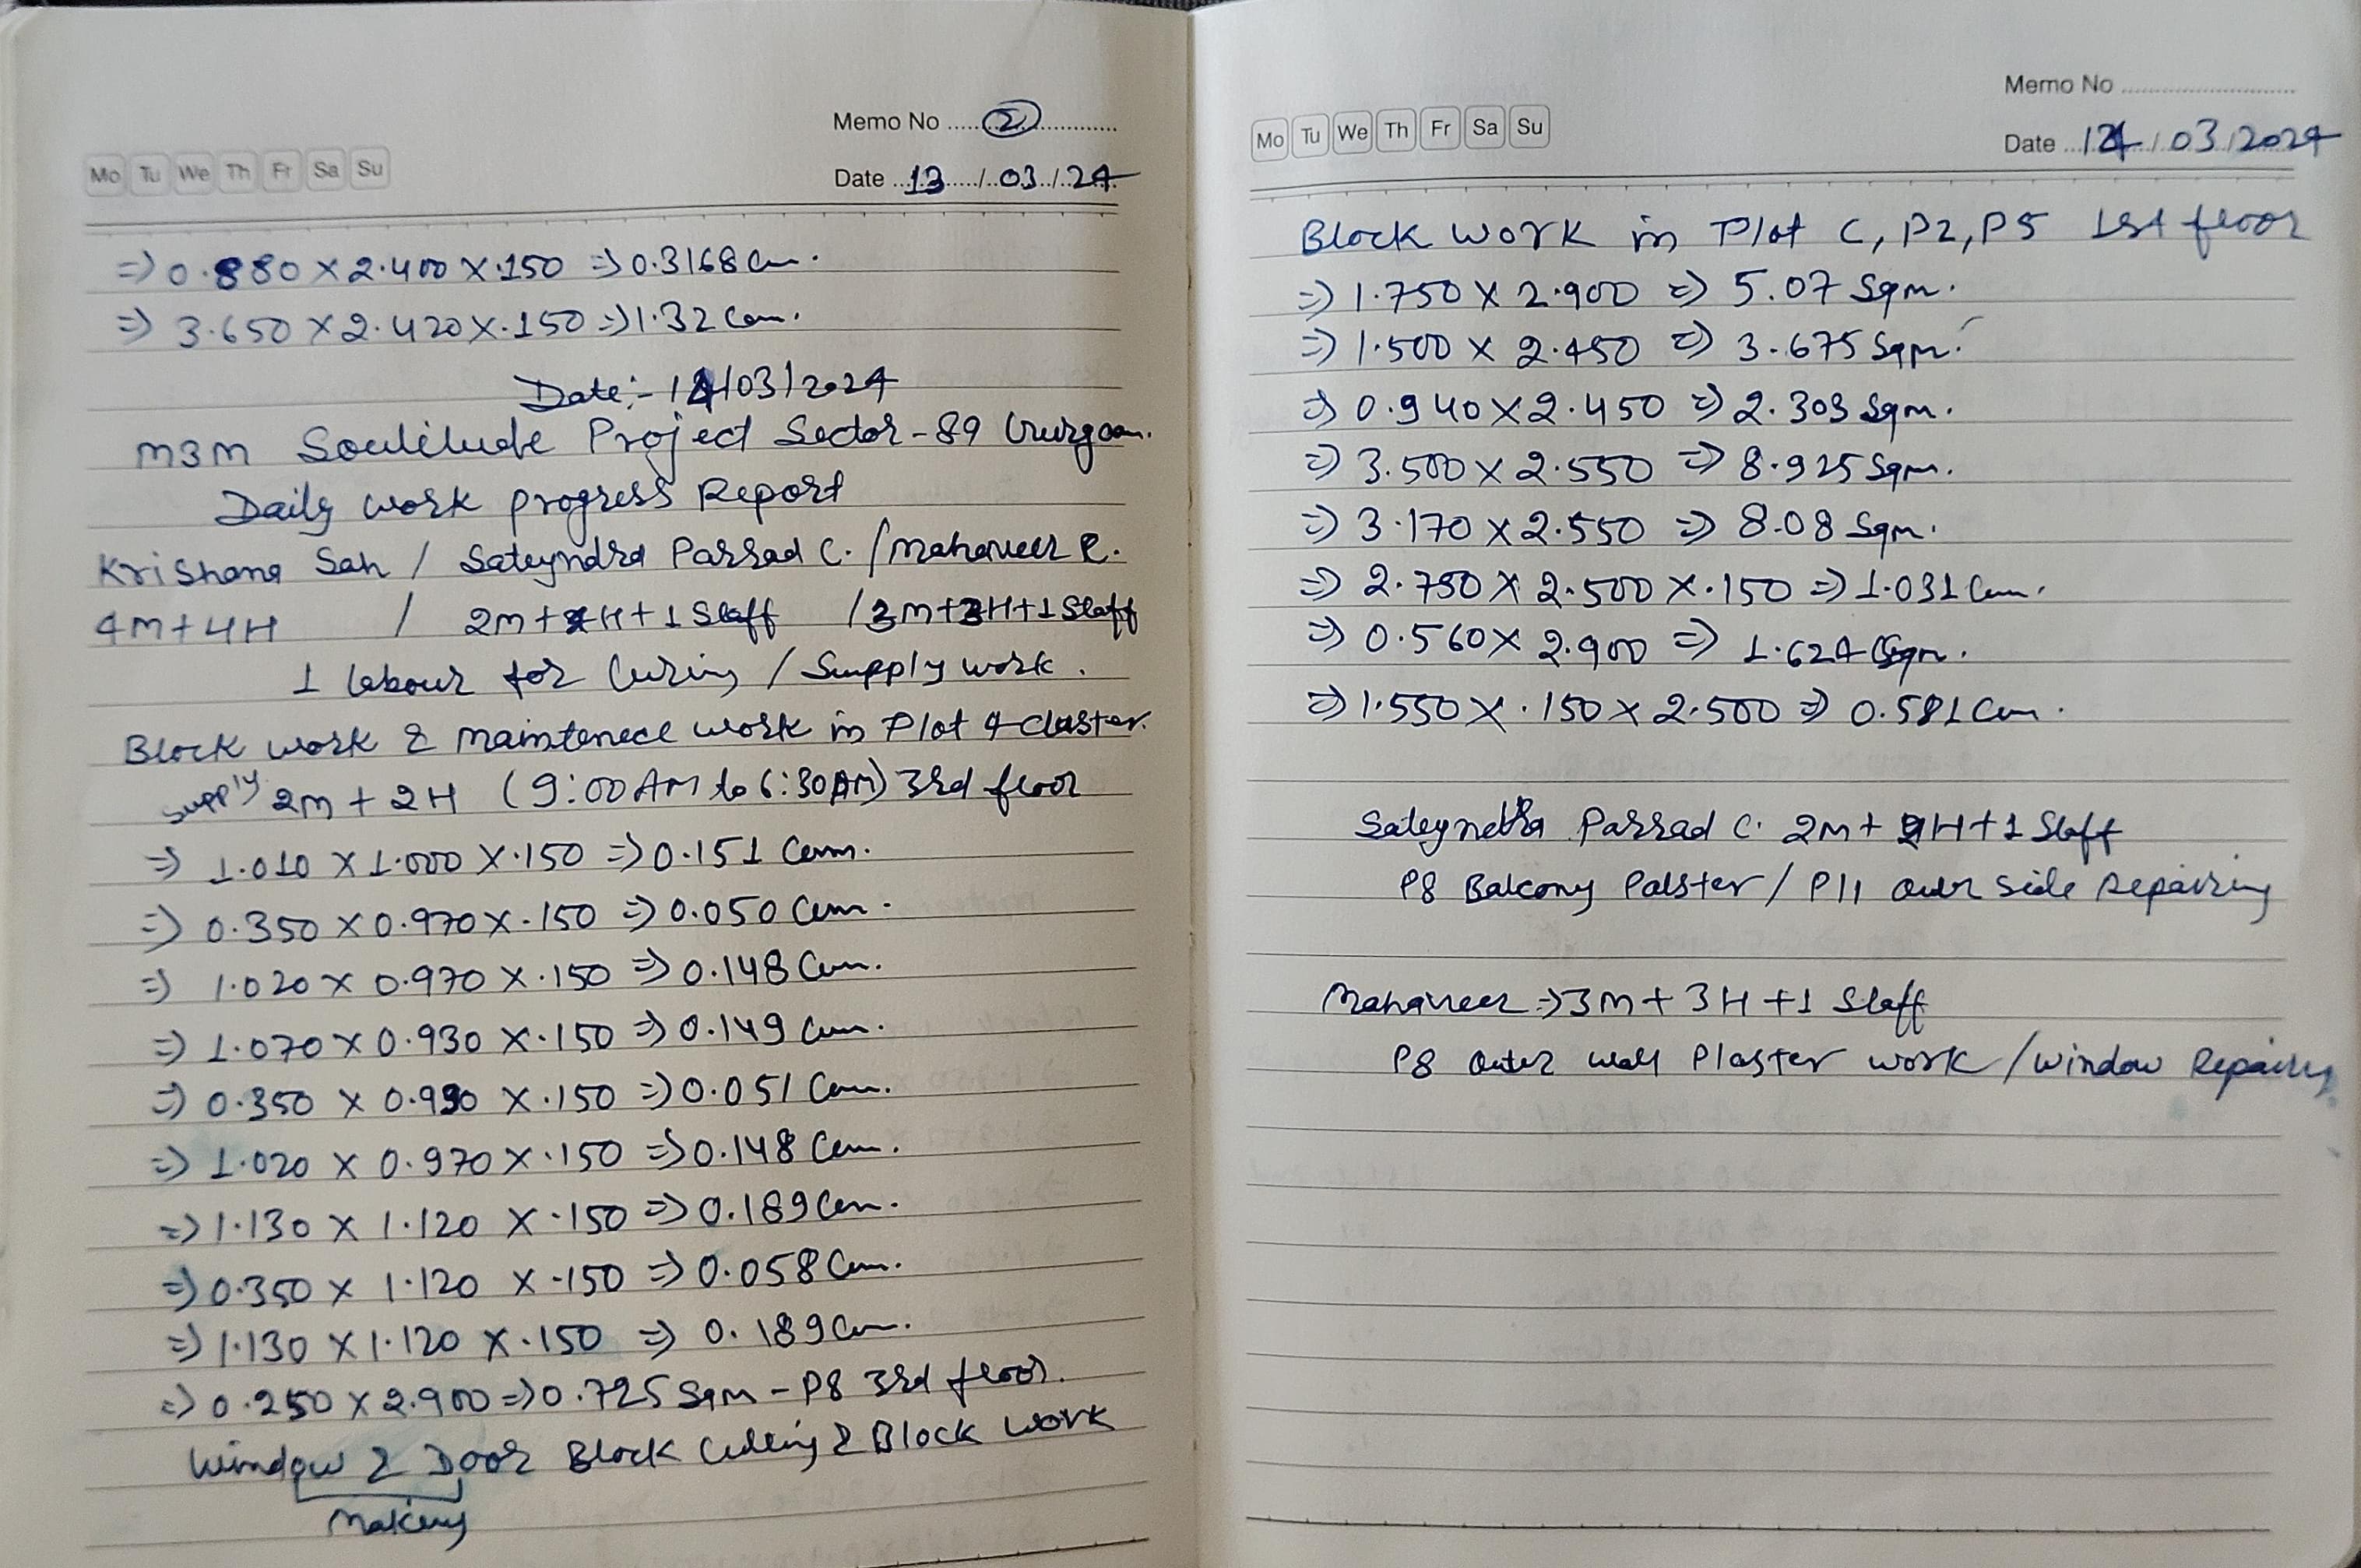 Memo No ②
Mo Tu We Th Fr Sa Su
Date 13/03/24
=> 0.880 x 2.400 x .150 => 0.3168 Cum.
=> 3.650 x 2.420 x .150 => 1.32 Cum.
Date:- 14/03/2024
M3M Soulitude Project Sector-89 Gurgaon.
Daily work progress Report
Krishana Sah / Sateyndra Parsad C. / Mahaveer R.
4M+4H / 2M+2H+1 Staff / 3M+3H+1 Staff
1 labour for Curing / Supply work.
Block work & maintenece work in Plot 4 cluster.
supply 2M + 2H (9:00 AM to 6:30 PM) 3rd floor
=> 1.010 x 1.000 x .150 => 0.151 Cum.
=> 0.350 x 0.970 x .150 => 0.050 Cum.
=> 1.020 x 0.970 x .150 => 0.148 Cum.
=> 1.070 x 0.930 x .150 => 0.149 Cum.
=> 0.350 x 0.990 x .150 => 0.051 Cum.
=> 1.020 x 0.970 x .150 => 0.148 Cum.
=> 1.130 x 1.120 x .150 => 0.189 Cum.
=> 0.350 x 1.120 x .150 => 0.058 Cum.
=> 1.130 x 1.120 x .150 => 0.189 Cum.
=> 0.250 x 2.900 => 0.725 Sqm - P8 3rd floor.
Window & Door Block Cutting & Block work
Making
Memo No
Mo Tu We Th Fr Sa Su
Date 14/03/2024
Block work in Plot C, P2, P5 1st floor
=> 1.750 x 2.900 => 5.07 Sqm.
=> 1.500 x 2.450 => 3.675 Sqm.
=> 0.940 x 2.450 => 2.303 Sqm.
=> 3.500 x 2.550 => 8.925 Sqm.
=> 3.170 x 2.550 => 8.08 Sqm.
=> 2.750 x 2.500 x .150 => 1.031 Cum.
=> 0.560 x 2.900 => 1.624 Sqm.
=> 1.550 x .150 x 2.500 => 0.581 Cum.
Parsad C. 2M + 2H + 1 Staff
P8 Balcony Palster / P11 outer side Repairing
Mahaveer => 3M + 3H + 1 Staff
P8 Outer wall Plaster work / window Repairing